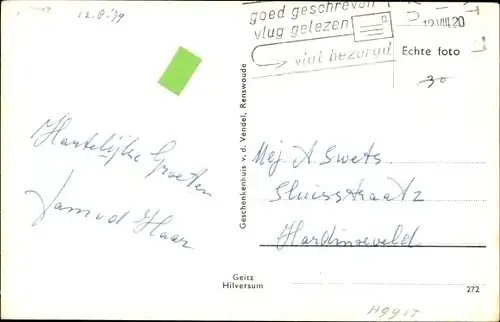 12.8.'79
goed geschreven
vlug gelezen
vlug bezorgd
Echte foto
30
Hartelijke Groeten
Geschenkenhuis v. d. Vendel, Renswoude
Mej. A. Swets
Sluisstraat 2
Hardinxveld
Geitz
Hilversum
272